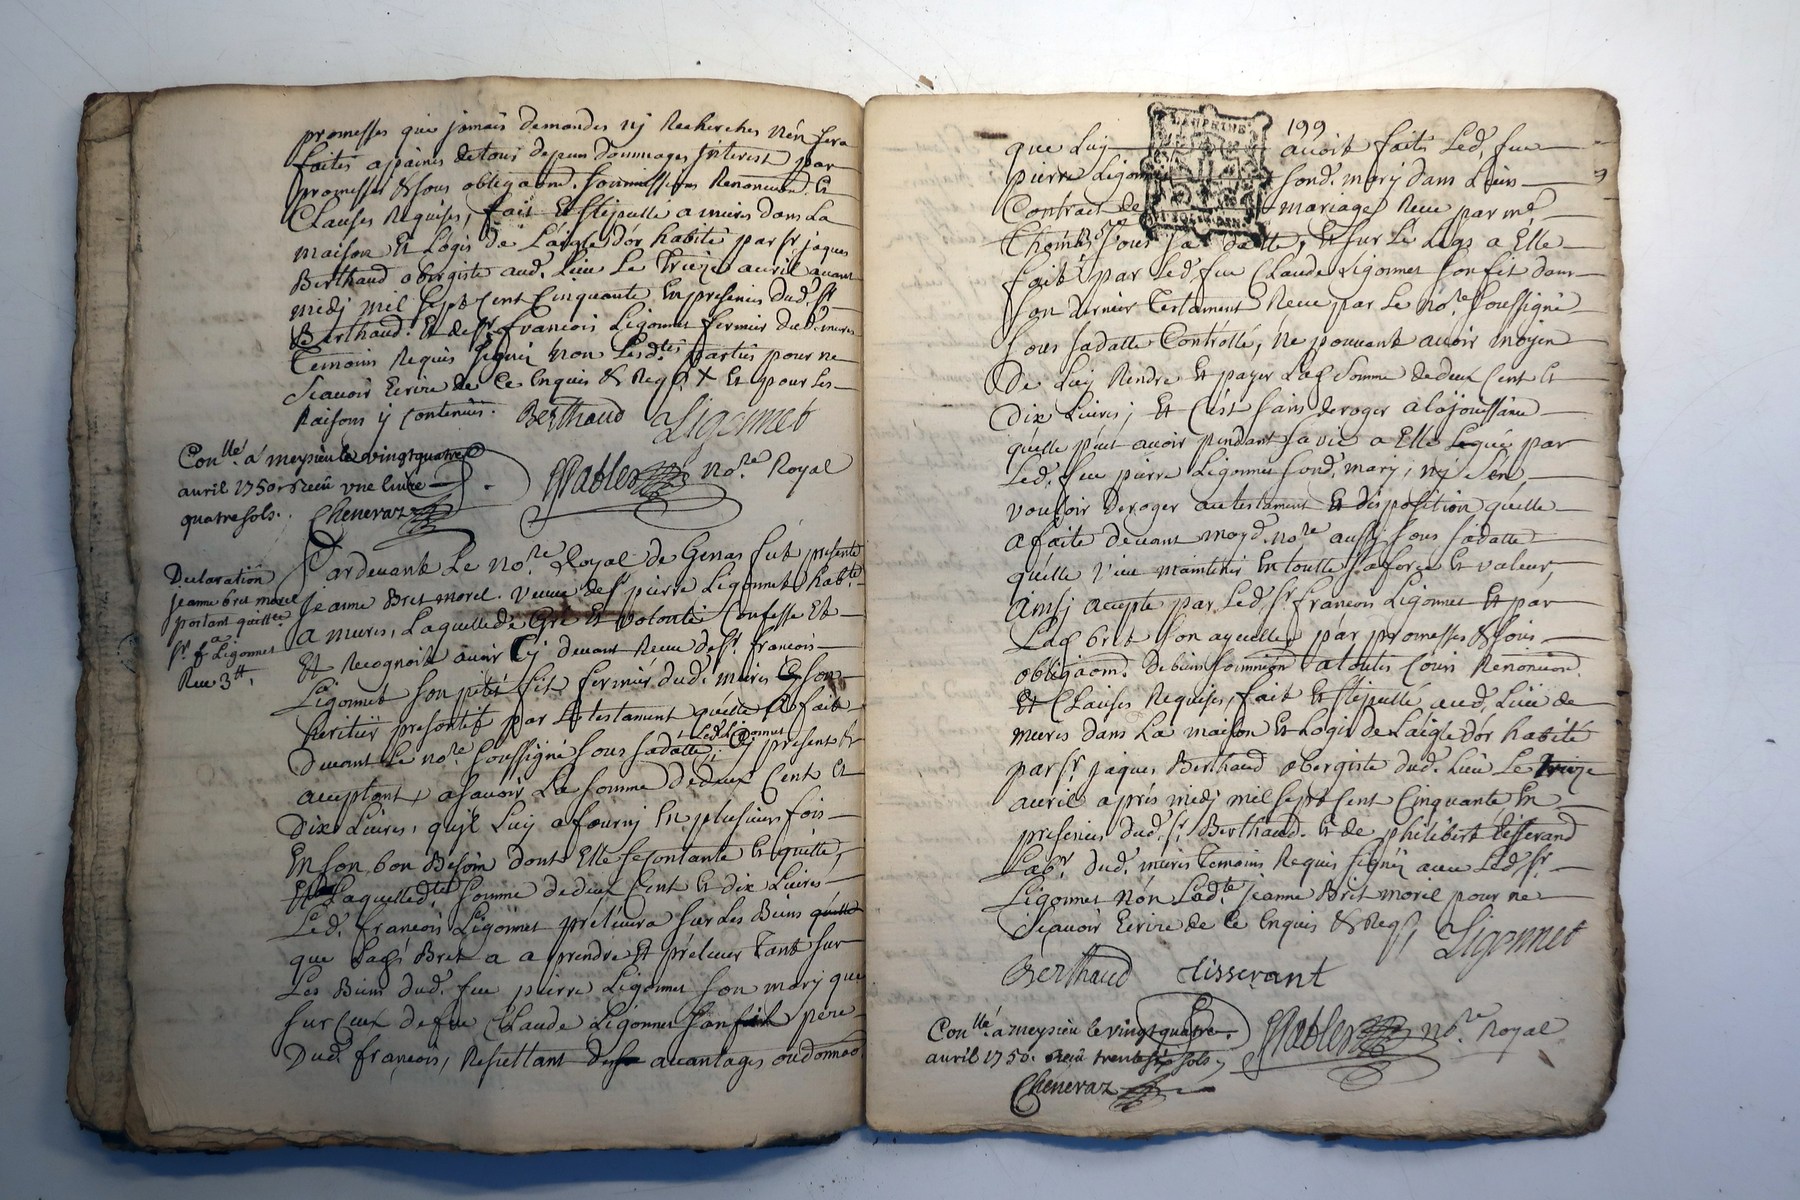 promesses que jamais demandes ny Recherches n'en sera
faites a paines de tous depens dommages Interest par
promesses & sous obligaōn. soumissions Renonciaōn. Et
Clauses Requises, fait Et stipullé a mures dans La
maison Et Logis de Laigle d'or habité par sr. jaques
Berthaud obergiste aud. Lieu Le Treize avril avant
midj mil sept cent Cinquante En presences dud. sr.
Berthaud. Et de sr. francois Ligonnet fermier dud. mures
Temoins Requis signéz non Lesd.tes parties pour ne
sçavoir Ecrire de Ce Enquis & Req. X Et pour Les
Raisons y contenues. Berthaud Ligonnet
Con.llé a meysieu le vingt quatre
avril 1750. Receu une livre
quatre sols. Cheneraz
No.re Royal
Pardevant Le No.re Royal de Genas fut presente
Declaration
jeanne bret morel
portant quitt.ce
a
sr. f. Ligonnet
Receu 3 tt.
jeanne Bret morel. veuve de sr. pierre Ligonnet hab.te
a mures, Laquelle de Gré Et volonté Confesse Et
Et Recognoit avoir Cy devant Receu de sr. francois
Ligonnet son petit fils fermier dud. mures Et son
heritier presontif par Le testament quelle A fait
devant Le no.re soussigné sous sa datte, Led. Ligonnet Cy present Et
acceptant, a savoir La somme de deux Cent Et
Dix Livres, qu'jl Luy a fourny En plusieurs fois
En son bon Besoin dont Elle se contante Et quitte,
Laquelled.te somme de deux Cent Et dix Livres
Led. francois Ligonnet prelevra sur Les Biens
que Lad. Bret a a prendre Et prelever Tant sur
Les Biens dud. feu pierre Ligonnet son mary que
sur Ceux de feu Claude Ligonnet son père
Dud. francois, Resultant avantages ou donnaō
199
que Luy avoit faits Led. feu
pierre Ligonnet sond. mary dans Leur
Contrat de mariage Receu par me.
sous sa datte, Et sur Le Legs a Elle
fait par Led. feu Claude Ligonnet son fils dans
son dernier Testament Receu par Le No.re soussigné
sous sa datte Contrôllé, ne pouvant avoir moyen
De Luy Rendre Et payer Lad. somme de deux Cent Et
Dix Livres; Et C'est sans deroger a la joüissance
quelle peut avoir pendant sa vie a Elle Leguée par
Led. feu pierre Ligonnet sond. mary, ny s'en
vouloir Deroger au testament Et disposition quelle
a faite devant moyd. No.re aussy sous sa datte
quelle veut maintenir En toutte sa force Et valeur,
Ainsj accepté par Led. sr. francois Ligonnet Et par
Lad. bret son ayeulle, par promesses & sous
obligaōn. De biens soumission a toutes Cours Renonciaōn.
Et Clauses Requises, fait Et stipullé aud. Lieu de
mures dans La maison Et Logis de Laigle d'or habité
par sr. jaques Berthaud obergiste dud. Lieu Le treize
avril aprés midj mil sept cent Cinquante, En
presences dud. sr. Berthaud. Et de philibert tisserand
Lab.r dud. mures Temoins Requis signéz avec Led. sr.
Ligonnet non Lad.te jeanne Bret morel pour ne
sçavoir Ecrire de Ce Enquis & Req. Ligonnet
Berthaud tisserant
Con.llé a meysieu le vingt quatre
avril 1750. Receu trente six sols,
No.re Royal
Cheneraz